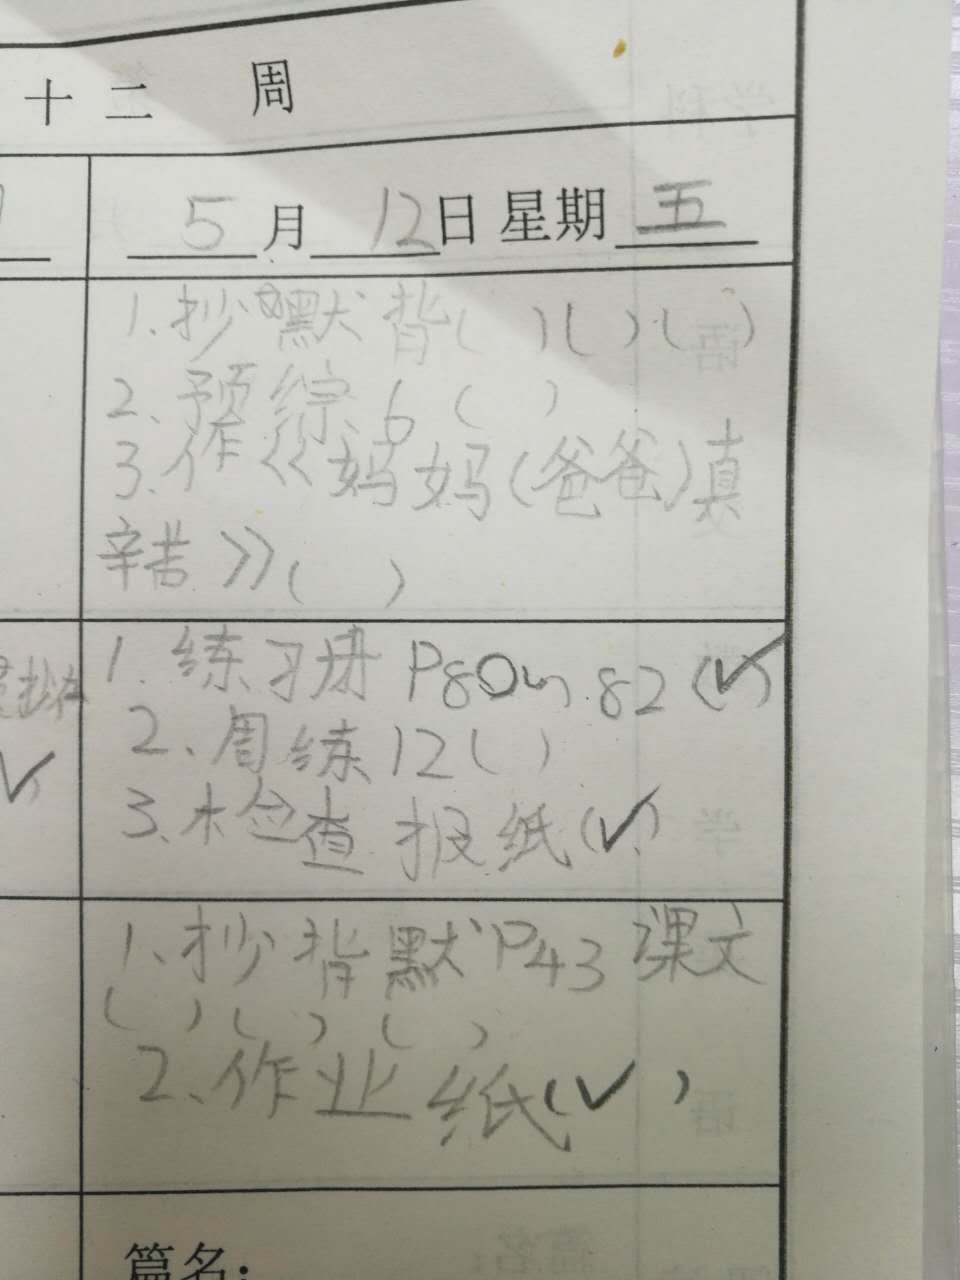 十二 周
5月12日星期五
1.抄默背( )( )( )
2.预综6( )
3.作《妈妈(爸爸)真
辛苦》( )
1.练习册P80~82(✓)
2.周练12( )
3.检查报纸(✓)
1.抄背默P43课文
( )( )( )
2.作业纸(✓)
篇名: